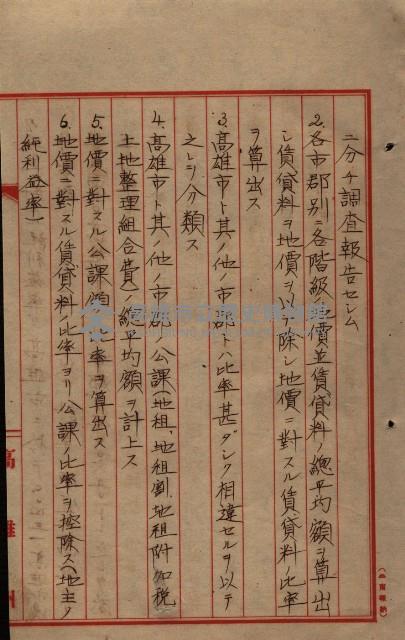 二分チ調査報告セシム
2.各市郡別ニ各階級地價並賃貸料ノ總平均額ヲ算出
シ賃貸料ヲ地價ヲ以テ除シ地價ニ對スル賃貸料ノ比率
ヲ算出ス
3.高雄市ト其ノ他ノ市郡トハ比率甚ダシク相違セルヲ以テ
之レヲ分類ス
4.高雄市ト其ノ他ノ市郡ノ公課(地租、地租割、地租附加税
土地整理組合費)總平均額ヲ計上ス
5.地價ニ對スル公課額比率ヲ算出ス
6.地價ニ對スル賃貸料ノ比率ヨリ公課ノ比率ヲ控除ス(地主ノ
純利益率)
高雄州